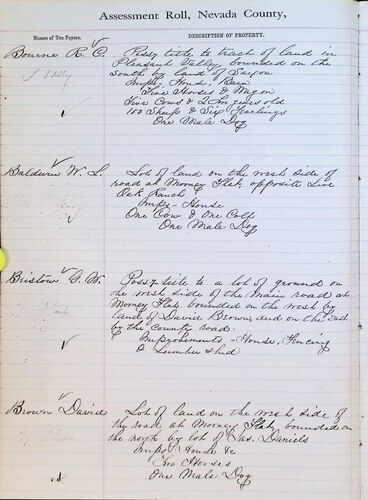 Assessment Roll, Nevada County,
Names of Tax Payers.
DESCRIPTION OF PROPERTY.
Bourne R. C.
Possy title to tract of land in
Pleasant Valley, bounded on the
South by land of
Impts, House, Barn
Five Horses & Wagon
Five Cows & 2 Two years old
100 Sheep & Six Yearlings
One Male Dog
Baldwin W. S.
Lot of land on the west side of
road at Mooney Flat, opposite Live
Oak Ranch
Imps- House
One Cow & One Calf
One Male Dog
Bristow G. W.
Possy title to a lot of ground on
the west side of the main road at
Mooney Flat bounded on the west by
land of David Brown, and on the East
by the County road.
Improvements - House, Fencing
& Lumber Shed
Brown David
Lot of land on the west side of
the road at Mooney Flat, bounded on
the north by lot of Jas. Daniels
Imps House &c
Two Horses
One Male Dog